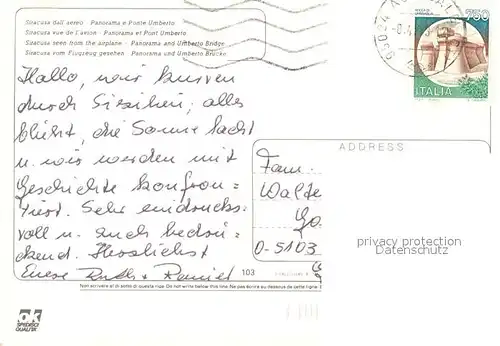 Siracusa dall'aereo - Panorama e Ponte Umberto
Siracusa vue de l'avion - Panorama et Pont Umberto
Siracusa seen from the airplane - Panorama and Umberto Bridge
Siracusa vom Flugzeug gesehen - Panorama und Umberto Brücke
750
ITALIA
Hallo, wir kurven
durch Sizilien, alles
blüht, die Sonne lacht
u. wir werden mit
Geschichte konfron=
tiert. Sehr eindrucks=
voll u. auch bedrü=
ckend. Herzlichst
Eure Ruth + Daniel
103
ADDRESS
Fam.
Walte
D-5103
privacy protection
Datenschutz
Non scrivere al di sotto di questa riga Do not write below this line Ne pas écrire au dessous de cette ligne
OK
SPEDISCI
QUALITA'